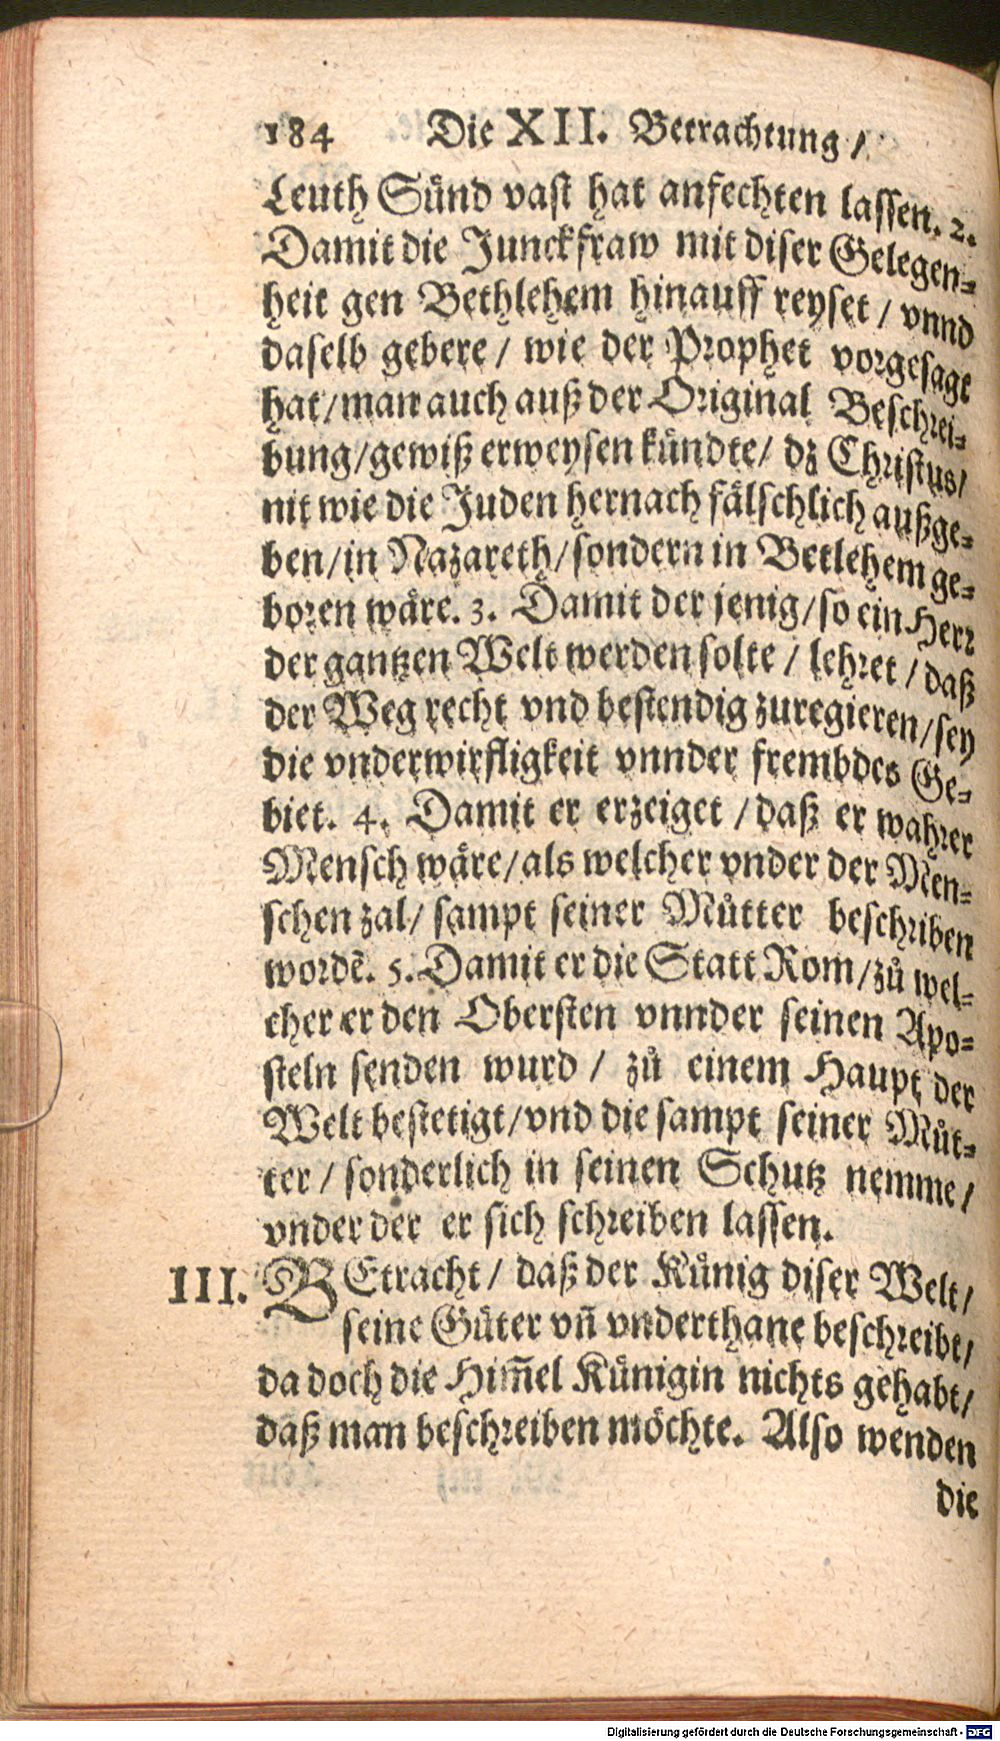 184 Die XII. Betrachtung /
Leuth Sünd vast hat anfechten lassen. 2.
Damit die Junckfraw mit diser Gelegen-
heit gen Bethlehem hinauff reyset / vnnd
daselb gebere / wie der Prophet vorgesagt
hat / man auch auß der Original Beschrei-
bung / gewiß erweysen kündte / dz Christus /
nit wie die Juden hernach fälschlich außge-
ben / in Nazareth / sondern in Betlehem ge-
boren wäre. 3. Damit der jenig / so ein Herr
der gantzen Welt werden solte / lehret / daß
der Weg recht vnd bestendig zuregieren / sey
die vnderwirfligkeit vnnder frembdes Ge-
biet. 4. Damit er erzeiget / daß er wahrer
Mensch wäre / als welcher vnder der Men-
schen zal / sampt seiner Můtter beschriben
wordẽ. 5. Damit er die Statt Rom / zů wel-
cher er den Obersten vnnder seinen Apo-
steln senden wurd / zů einem Haupt der
Welt bestetigt / vnd die sampt seiner Můt-
ter / sonderlich in seinen Schutz nemme /
vnder der er sich schreiben lassen.
III. BEtracht / daß der Künig diser Welt /
seine Güter vñ vnderthane beschreibt /
da doch die Him̃el Künigin nichts gehabt /
daß man beschreiben möchte. Also wenden
die
Digitalisierung gefördert durch die Deutsche Forschungsgemeinschaft - DFG